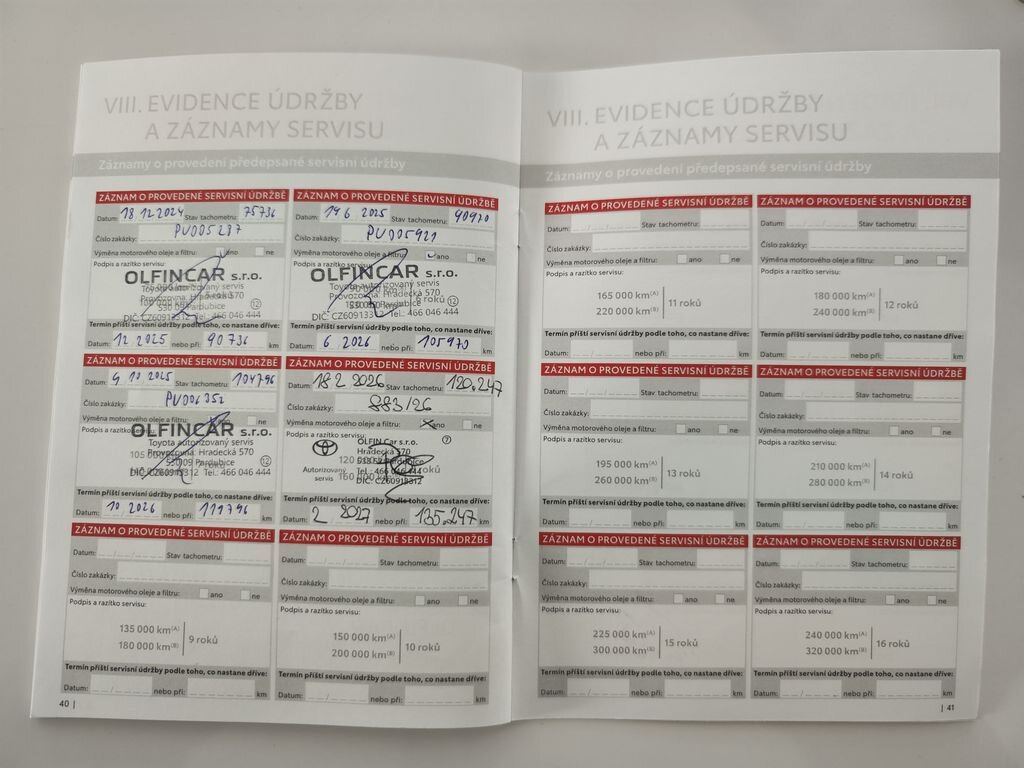 VIII. EVIDENCE ÚDRŽBY
A ZÁZNAMY SERVISU
Záznamy o provedení předepsané servisní údržby
ZÁZNAM O PROVEDENÉ SERVISNÍ ÚDRŽBĚ
Datum: 18.12.2024 Stav tachometru: 75736
Číslo zakázky: PU005237
Výměna motorového oleje a filtru: ano ne
Podpis a razítko servisu:
OLFINCAR s.r.o.
Toyota autorizovaný servis
Provozovna: Hradecká 570
530 09 Pardubice
DIČ: CZ60913312 Tel.: 466 046 444
12
Termín příští servisní údržby podle toho, co nastane dříve:
Datum: 12 2025 nebo při: 90736 km
ZÁZNAM O PROVEDENÉ SERVISNÍ ÚDRŽBĚ
Datum: 14 6 2025 Stav tachometru: 90970
Číslo zakázky: PU005921
Výměna motorového oleje a filtru: ano ne
Podpis a razítko servisu:
OLFINCAR s.r.o.
Toyota autorizovaný servis
Provozovna: Hradecká 570
530 09 Pardubice
DIČ: CZ60913312 Tel.: 466 046 444
12
Termín příští servisní údržby podle toho, co nastane dříve:
Datum: 6 2026 nebo při: 105970 km
ZÁZNAM O PROVEDENÉ SERVISNÍ ÚDRŽBĚ
Datum: 9 10 2025 Stav tachometru: 104796
Číslo zakázky: PU006352
Výměna motorového oleje a filtru: ano ne
Podpis a razítko servisu:
OLFINCAR s.r.o.
Toyota autorizovaný servis
Provozovna: Hradecká 570
53009 Pardubice
DIČ: CZ60913312 Tel.: 466 046 444
12
Termín příští servisní údržby podle toho, co nastane dříve:
Datum: 10 2026 nebo při: 119796 km
ZÁZNAM O PROVEDENÉ SERVISNÍ ÚDRŽBĚ
Datum: 18 2 2026 Stav tachometru: 120.247
Číslo zakázky: 883/26
Výměna motorového oleje a filtru: ano ne
Podpis a razítko servisu:
OLFIN Car s.r.o. 7
Hradecká 570
Autorizovaný servis
Tel.: 466 046 444
DIČ: CZ60913312
Termín příští servisní údržby podle toho, co nastane dříve:
Datum: 2 2027 nebo při: 135.247 km
ZÁZNAM O PROVEDENÉ SERVISNÍ ÚDRŽBĚ
Datum: Stav tachometru:
Číslo zakázky:
Výměna motorového oleje a filtru: ano ne
Podpis a razítko servisu:
135 000 km(A)
180 000 km(B)
9 roků
Termín příští servisní údržby podle toho, co nastane dříve:
Datum: nebo při: km
ZÁZNAM O PROVEDENÉ SERVISNÍ ÚDRŽBĚ
Datum: Stav tachometru:
Číslo zakázky:
Výměna motorového oleje a filtru: ano ne
Podpis a razítko servisu:
150 000 km(A)
200 000 km(B)
10 roků
Termín příští servisní údržby podle toho, co nastane dříve:
Datum: nebo při: km
40 |
VIII. EVIDENCE ÚDRŽBY
A ZÁZNAMY SERVISU
Záznamy o provedení předepsané servisní údržby
ZÁZNAM O PROVEDENÉ SERVISNÍ ÚDRŽBĚ
Datum: Stav tachometru:
Číslo zakázky:
Výměna motorového oleje a filtru: ano ne
Podpis a razítko servisu:
165 000 km(A)
220 000 km(B)
11 roků
Termín příští servisní údržby podle toho, co nastane dříve:
Datum: nebo při: km
ZÁZNAM O PROVEDENÉ SERVISNÍ ÚDRŽBĚ
Datum: Stav tachometru:
Číslo zakázky:
Výměna motorového oleje a filtru: ano ne
Podpis a razítko servisu:
180 000 km(A)
240 000 km(B)
12 roků
Termín příští servisní údržby podle toho, co nastane dříve:
Datum: nebo při: km
ZÁZNAM O PROVEDENÉ SERVISNÍ ÚDRŽBĚ
Datum: Stav tachometru:
Číslo zakázky:
Výměna motorového oleje a filtru: ano ne
Podpis a razítko servisu:
195 000 km(A)
260 000 km(B)
13 roků
Termín příští servisní údržby podle toho, co nastane dříve:
Datum: nebo při: km
ZÁZNAM O PROVEDENÉ SERVISNÍ ÚDRŽBĚ
Datum: Stav tachometru:
Číslo zakázky:
Výměna motorového oleje a filtru: ano ne
Podpis a razítko servisu:
210 000 km(A)
280 000 km(B)
14 roků
Termín příští servisní údržby podle toho, co nastane dříve:
Datum: nebo při: km
ZÁZNAM O PROVEDENÉ SERVISNÍ ÚDRŽBĚ
Datum: Stav tachometru:
Číslo zakázky:
Výměna motorového oleje a filtru: ano ne
Podpis a razítko servisu:
225 000 km(A)
300 000 km(B)
15 roků
Termín příští servisní údržby podle toho, co nastane dříve:
Datum: nebo při: km
ZÁZNAM O PROVEDENÉ SERVISNÍ ÚDRŽBĚ
Datum: Stav tachometru:
Číslo zakázky:
Výměna motorového oleje a filtru: ano ne
Podpis a razítko servisu:
240 000 km(A)
320 000 km(B)
16 roků
Termín příští servisní údržby podle toho, co nastane dříve:
Datum: nebo při: km
| 41